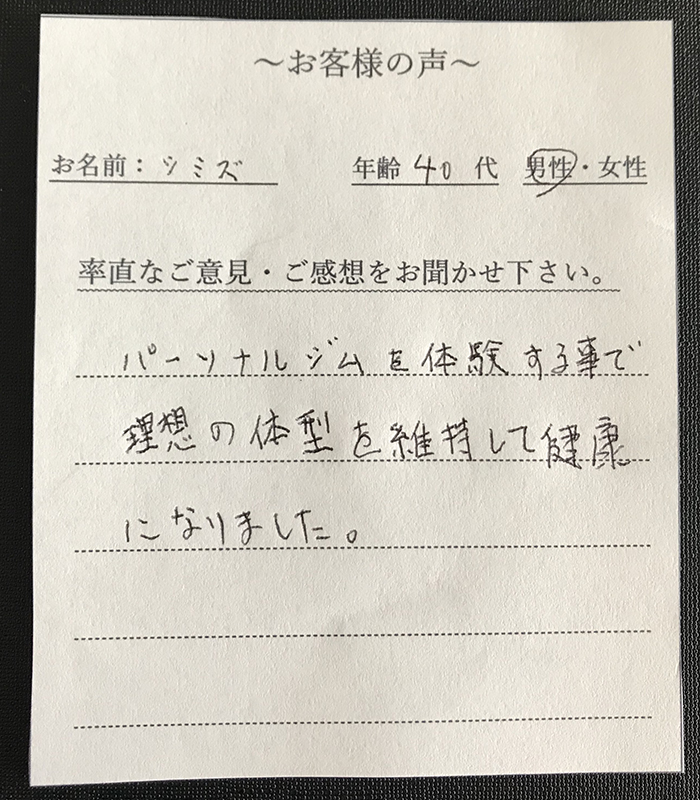 ～お客様の声～
お名前：シミズ 年齢 40 代 男性・女性
率直なご意見・ご感想をお聞かせ下さい。
パーソナルジムを体験する事で
理想の体型を維持して健康
になりました。